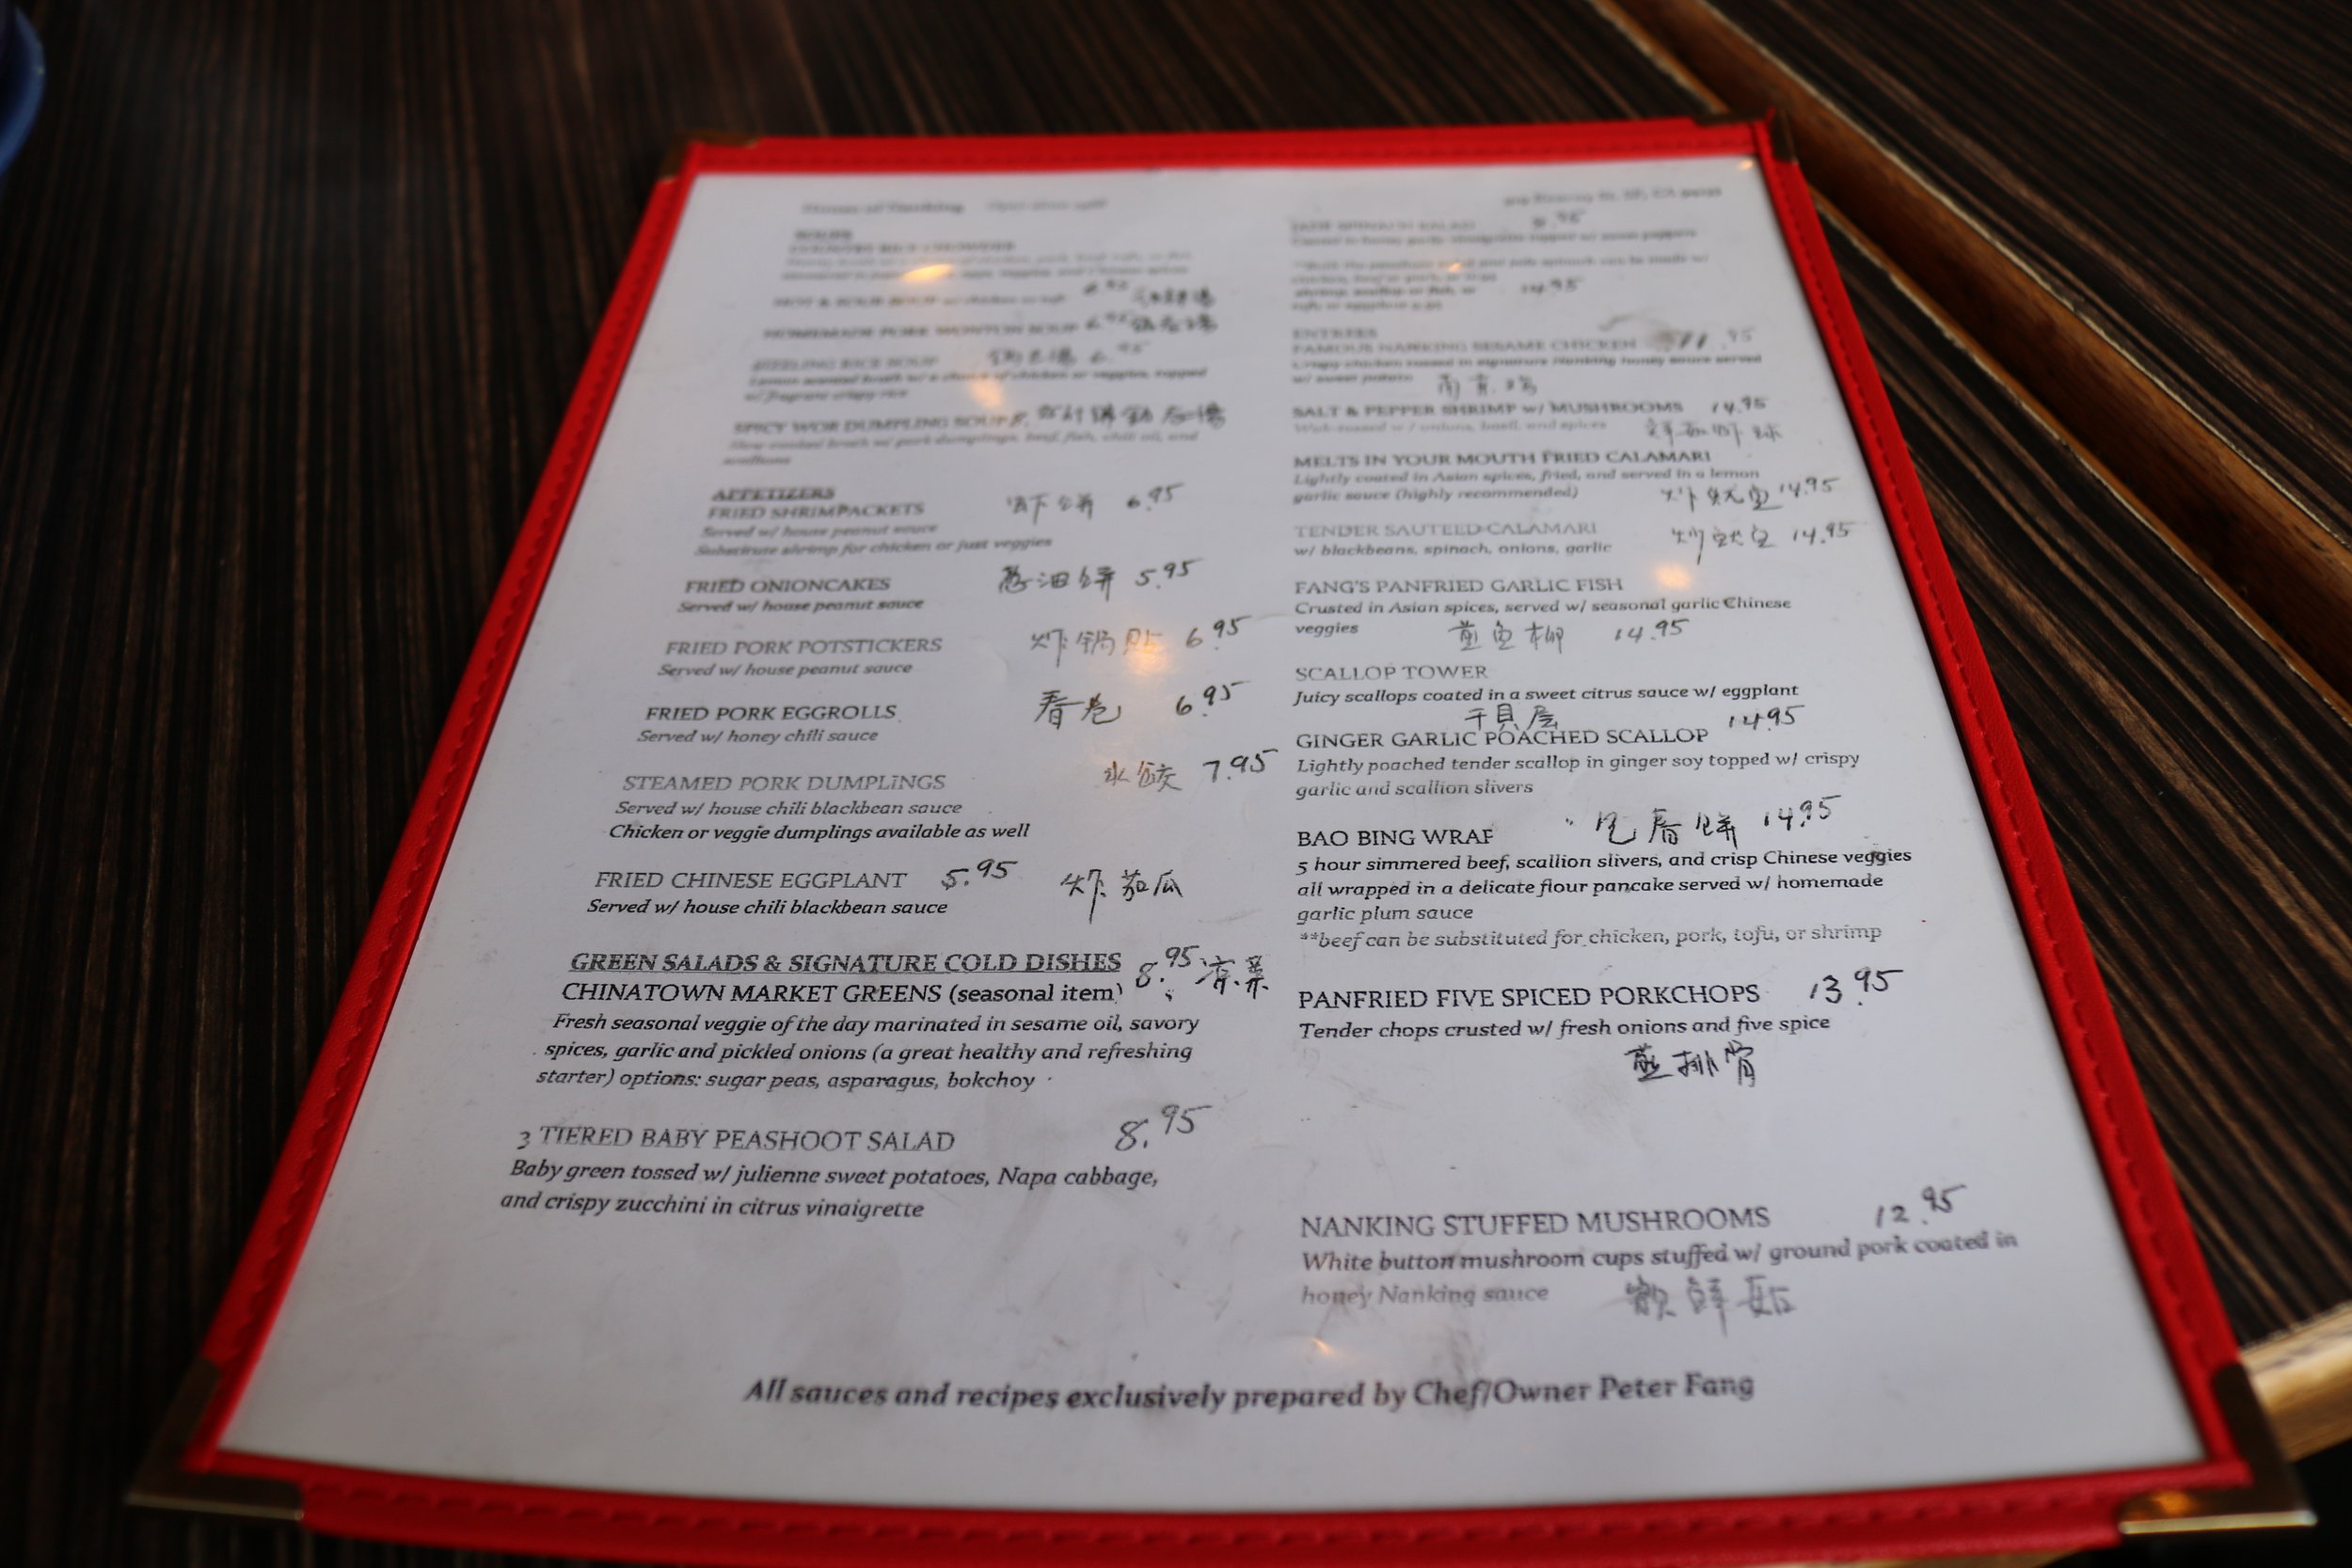 House of Nanking
SOUPS
HOT & SOUR SOUP w/ chicken or
HOMEMADE PORK WONTON SOUP 6.95
SIZZLING RICE SOUP 6.95
Lemon scented broth w/ a choice of chicken or veggies, topped
w/ fragrant crispy rice
SPICY WOR DUMPLING SOUP
broth w/ pork dumplings, beef, fish, chili oil, and
scallions
APPETIZERS
FRIED SHRIMPACKETS 6.95
Served w/ house peanut sauce
Substitute shrimp for chicken or just veggies
FRIED ONIONCAKES 葱油饼 5.95
Served w/ house peanut sauce
FRIED PORK POTSTICKERS 炸锅贴 6.95
Served w/ house peanut sauce
FRIED PORK EGGROLLS 春卷 6.95
Served w/ honey chili sauce
STEAMED PORK DUMPLINGS 水餃 7.95
Served w/ house chili blackbean sauce
Chicken or veggie dumplings available as well
FRIED CHINESE EGGPLANT 5.95 炸茄瓜
Served w/ house chili blackbean sauce
GREEN SALADS & SIGNATURE COLD DISHES
CHINATOWN MARKET GREENS (seasonal item) 8.95 凉菜
Fresh seasonal veggie of the day marinated in sesame oil, savory
spices, garlic and pickled onions (a great healthy and refreshing
starter) options: sugar peas, asparagus, bokchoy
3 TIERED BABY PEASHOOT SALAD 8.95
Baby green tossed w/ julienne sweet potatoes, Napa cabbage,
and crispy zucchini in citrus vinaigrette
Kearny St, SF, CA
JADE SPINACH SALAD 8.95
shrimp, scallop or fish, or 14.95
ENTREES
FAMOUS NANKING SESAME CHICKEN 11.95
Crispy chicken tossed in signature Nanking honey sauce served
w/ sweet potato 南京鸡
SALT & PEPPER SHRIMP w/ MUSHROOMS 14.95
Wok-tossed w/ onions, basil, and spices
MELTS IN YOUR MOUTH FRIED CALAMARI
Lightly coated in Asian spices, fried, and served in a lemon
garlic sauce (highly recommended) 炸魷鱼 14.95
TENDER SAUTEED CALAMARI 炒魷鱼 14.95
w/ blackbeans, spinach, onions, garlic
FANG'S PANFRIED GARLIC FISH
Crusted in Asian spices, served w/ seasonal garlic Chinese
veggies 煎鱼柳 14.95
SCALLOP TOWER
Juicy scallops coated in a sweet citrus sauce w/ eggplant
干貝层 14.95
GINGER GARLIC POACHED SCALLOP
Lightly poached tender scallop in ginger soy topped w/ crispy
garlic and scallion slivers
BAO BING WRAP 14.95
5 hour simmered beef, scallion slivers, and crisp Chinese veggies
all wrapped in a delicate flour pancake served w/ homemade
garlic plum sauce
**beef can be substituted for chicken, pork, tofu, or shrimp
PANFRIED FIVE SPICED PORKCHOPS 13.95
Tender chops crusted w/ fresh onions and five spice
煎排骨
NANKING STUFFED MUSHROOMS 12.95
White button mushroom cups stuffed w/ ground pork coated in
honey Nanking sauce 鲜菇
All sauces and recipes exclusively prepared by Chef/Owner Peter Fang